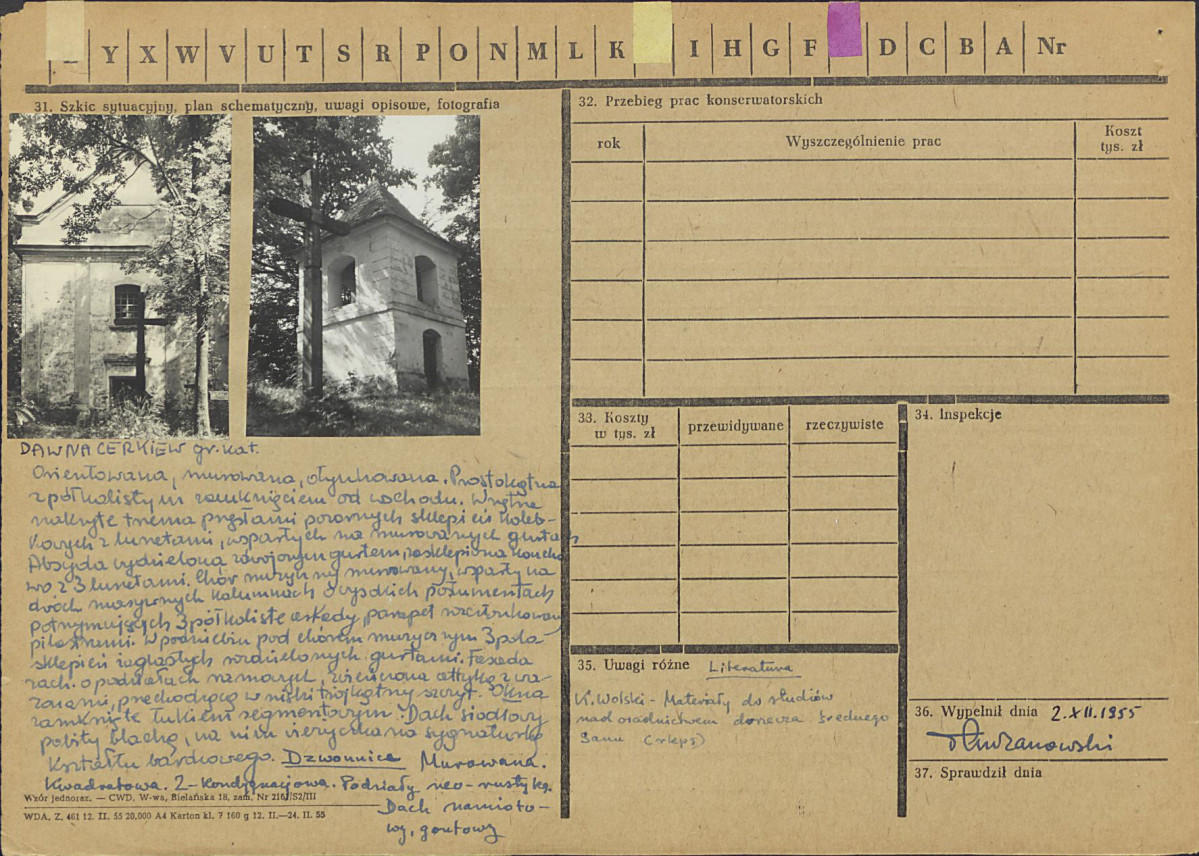 Y X W V U T S R P O N M L K I H G F D C B A Nr
31. Szkic sytuacyjny, plan schematyczny, uwagi opisowe, fotografia
DAWNA CERKIEW gr. kat.
Orientowana, murowana, otynkowana. Prostokątna
z półkolistym zamknięciem od wschodu. Wnętrze
nakryte trzema przęsłami pozornych sklepień koleb-
kowych z lunetami, wspartych na murowanych gurtach
Absyda wydzieloną gurtem, zasklepiona koncho
wo z 3 lunetami. Chór muzyczny murowany, wsparty na
dwóch masywnych kolumnach o wysokich postumentach
potrzymujących 3 półkoliste arkady, parapet rozczłonkowany
pilastrami. W podniebiu pod chórem muzycznym 3 pola
sklepień żaglastych rozdzielonych gurtami. Fasada
zach. o podziałach ramowych, zwieńczona attyką z wa-
zonami, przechodzącą w niski trójkątny szczyt. Okna
zamknięte łukiem segmentowym. Dach siodłowy
pobity blachą, na nim wieżyczka na sygnaturkę
kształtu bańkowego. Dzwonnica Murowana.
Kwadratowa. 2-kondygnacjowa. Podziały neo-rustyką.
Dach namioto-
wy, gontowy
Wzór jednoraz. — CWD, W-wa, Bielańska 18, zam. Nr 216/S2/III
WDA. Z. 461 12. II. 55 20.000 A4 Karton kl. 7 160 g 12. II.—24. II. 55
32. Przebieg prac konserwatorskich
rok Wyszczególnienie prac Koszt tys. zł
33. Koszty w tys. zł przewidywane rzeczywiste
34. Inspekcje
35. Uwagi różne Literatura
K. Wolski - Materiały do studiów
nad osadnictwem dorzecza średnego
Sanu (rkps)
36. Wypełnił dnia 2.XII.1955
37. Sprawdził dnia